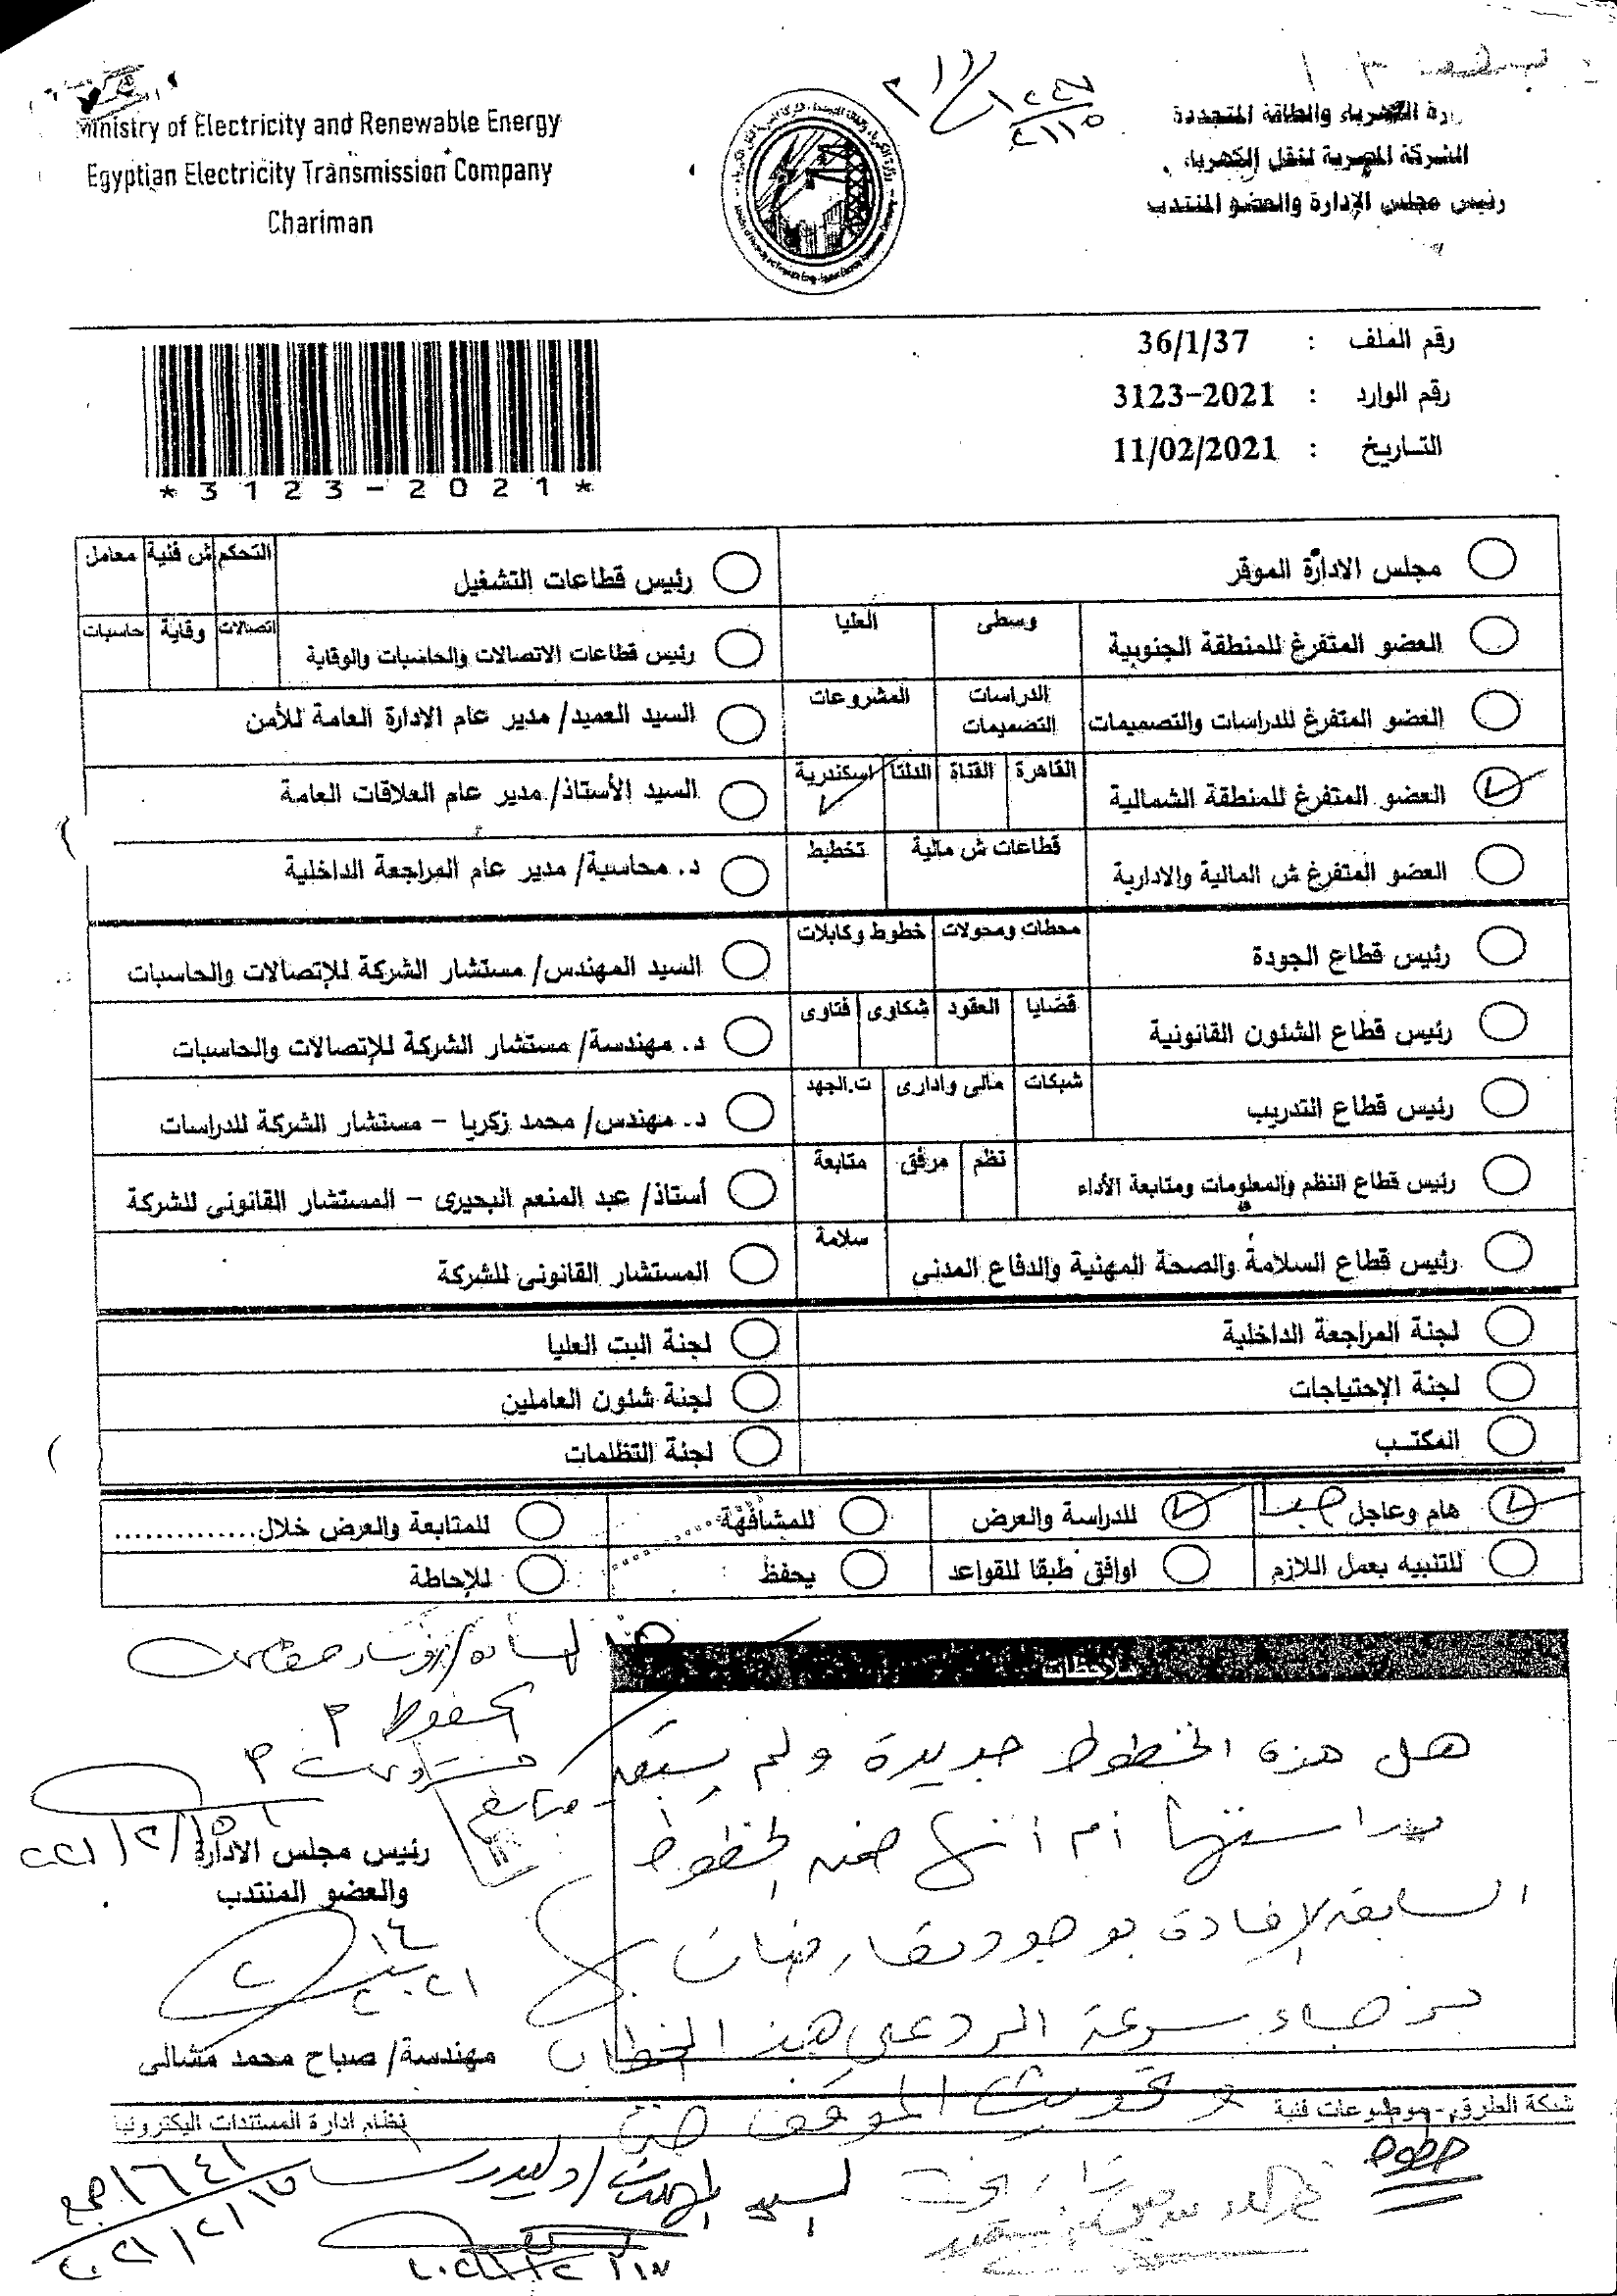 Ministry of Electricity and Renewable Energy
Egyptian Electricity Transmission Company
Chariman
رة الكهرباء والطاقة المتجددة
الشركة المصرية لنقل الكهرباء
رئيس مجلس الإدارة والعضو المنتدب
رقم الملف : 36/1/37
رقم الوارد : 3123-2021
التاريخ : 11/02/2021
*3123-2021*
مجلس الادارة الموقر
رئيس قطاعات التشغيل
التحكم ش فنية معامل
العضو المتفرغ للمنطقة الجنوبية
وسطى العليا
رئيس قطاعات الاتصالات والحاسبات والوقاية
اتصالات وقاية حاسبات
العضو المتفرغ للدراسات والتصميمات
الدراسات التصميمات المشروعات
السيد العميد/ مدير عام الادارة العامة للأمن
العضو المتفرغ للمنطقة الشمالية
القاهرة القناة الدلتا اسكندرية
السيد الأستاذ/ مدير عام العلاقات العامة
العضو المتفرغ ش المالية والادارية
قطاعات ش مالية تخطيط
د. محاسبة/ مدير عام المراجعة الداخلية
رئيس قطاع الجودة
محطات ومحولات خطوط وكابلات
السيد المهندس/ مستشار الشركة للإتصالات والحاسبات
رئيس قطاع الشئون القانونية
قضايا العقود شكاوى فتاوى
د. مهندسة/ مستشار الشركة للإتصالات والحاسبات
رئيس قطاع التدريب
شبكات مالى وادارى ت.الجهد
د. مهندس/ محمد زكريا - مستشار الشركة للدراسات
رئيس قطاع النظم والمعلومات ومتابعة الأداء
نظم مرفق متابعة
أستاذ/ عبد المنعم البحيرى - المستشار القانونى للشركة
رئيس قطاع السلامة والصحة المهنية والدفاع المدنى
سلامة
المستشار القانونى للشركة
لجنة المراجعة الداخلية
لجنة البت العليا
لجنة الإحتياجات
لجنة شئون العاملين
المكتب
لجنة التظلمات
هام وعاجل جدا
للدراسة والعرض
للمشافهة
للمتابعة والعرض خلال..............
للتنبيه بعمل اللازم
اوافق طبقا للقواعد
يحفظ
للإحاطة
ملاحظات
هل هذه الخطوط جديدة ولم يسبق
دراستها أم أنها ضمن الخطوط
السابق الإفادة بوجود تعارضات
برجاء سرعة الرد على هذا الخطاب
و تحديث الموقف
رئيس مجلس الادارة
والعضو المنتدب
مهندسة/ صباح محمد مشالى
شبكة الطرق - موضوعات فنية
نظام ادارة المستندات اليكترونيا
خطوط
السيد المهندس / وليد